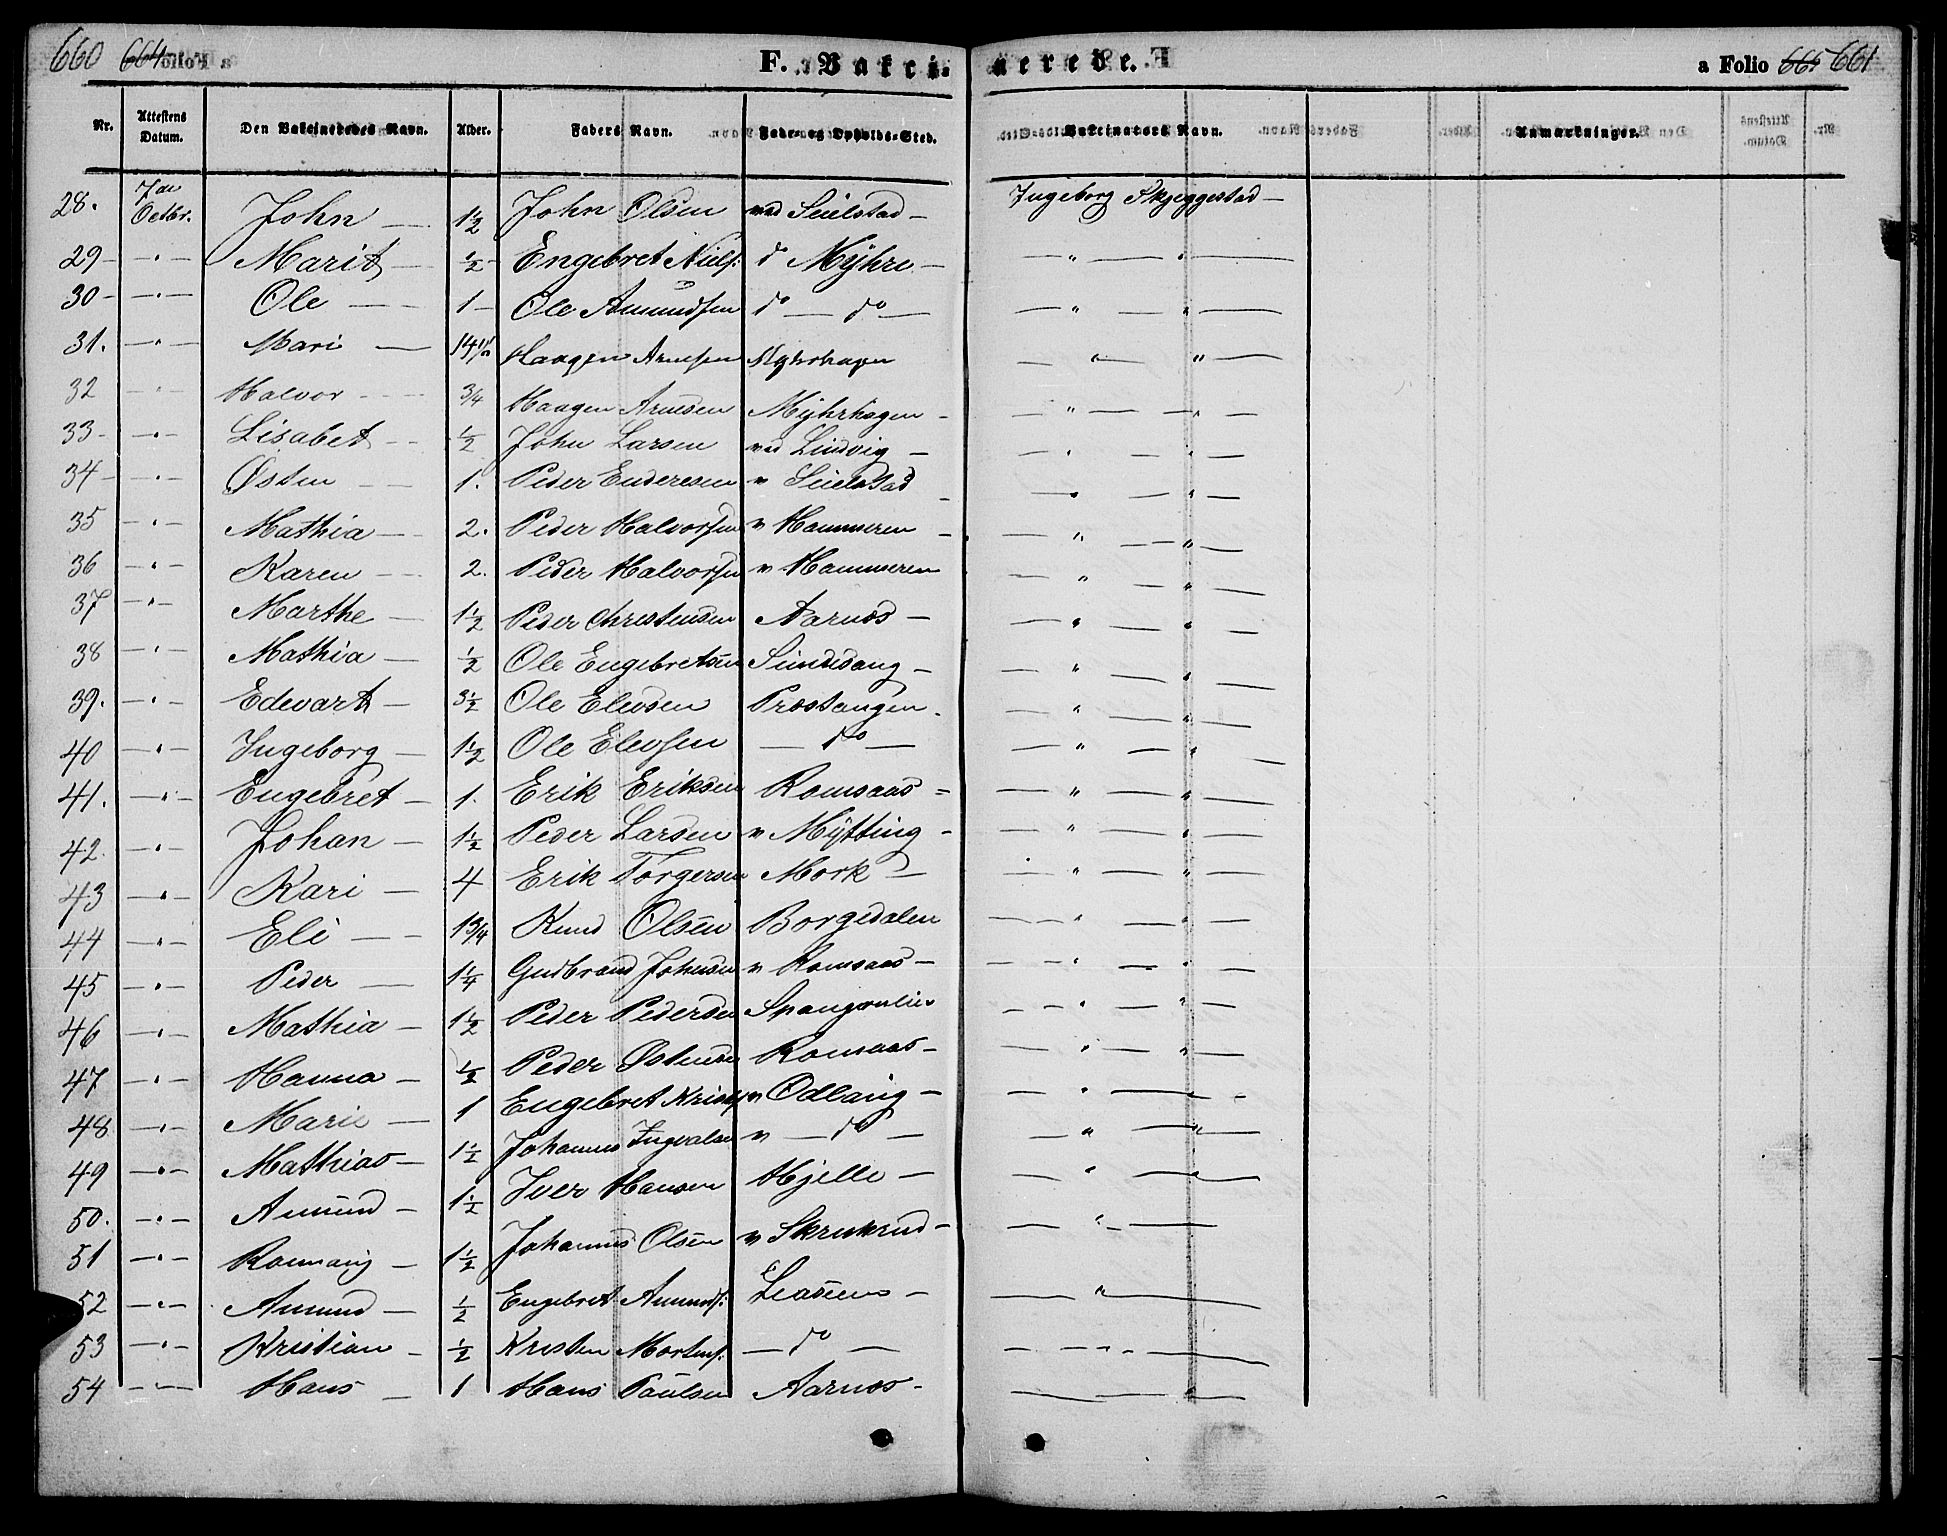 660 664
F. Vakci- nerede. a Folio 665 661
Nr. Attestens Datum. Den Vakcineredes Navn. Alder. Faders Navn. Føde- og Opholds-Sted. Vakcinators Navn. Anmærkninger.
28. 7de Octbr. John — 1½ John Olsen ved Seielstad — Ingeborg Skjeggestad —
29 — " — Marit — ½ — Engebret Niels: do Myhre — — " — " —
30 — — " — Ole — — 1 — Ole Amundsen do — do — — " — " —
31. — " — Mari — 14 Haagen Arnesen Myhrhagen — " — " —
32 — " — Halvor — — ¾ Haagen Arnesen Myhrhagen — — " — " —
33 — — " — Lisabet — — ½ John Larsen ved Lindvig — — " — " —
34 — — " — Østen — — 1. Peder Enderesen v Seielstad — — " — " —
35 — " — Mathia — — 2. Peder Halvorsen v Hammeren — — " — " —
36 — " — Karen — — 2. Peder Halvorsen v Hammeren — " — " —
37 — " — Marthe — 1½ Peder Christensen Aarnæs — — " — " —
38 — " — Mathia — ½ Ole Engebretsen — — " — " —
39. — " — Edevart — 3½ Ole Elevsen Præstangen — — " — " —
40 — " — Ingeborg — 1½ Ole Elevsen — do — — " — " —
41. — " — Engebret — 1. Erik Eriksen Romsaas = — " — " —
42. — " — Johan — 1½ Peder Larsen v Mytting — — " — " —
43 — " — Kari — 4 Erik Torgersen Mork — — " — " —
44 — " — Eli — — 1¾ Knud Olsen Borgedalen — " — " —
45 — " — Peder — 1¼ Gudbrand Johnsen v Romsaas — — " — " —
46 — " — Mathia — 1½ Peder Pedersen — " — " —
47 — " — Hanna — ½ Peder Østensen Romsaas — — " — " —
48 — " — Marie — 1 Engebret v Odlaug — — " — " —
49 — " — Mathias — 1½ Johannes Ingvalsen v — do — — " — " —
50. — " — Amund — 1½ Iver Hansen Hjelle — — " — " —
51 — " — — 1½ Johannes Olsen v Skrukrud — — " —
52 — " — Amund — ½ Engebret Amunds: — — " —
53 — " — Kristian — ½ Kristen Mortens: — do — — " — " —
54 — " — Hans — 1 Hans Paulsen Aarnæs — — " —